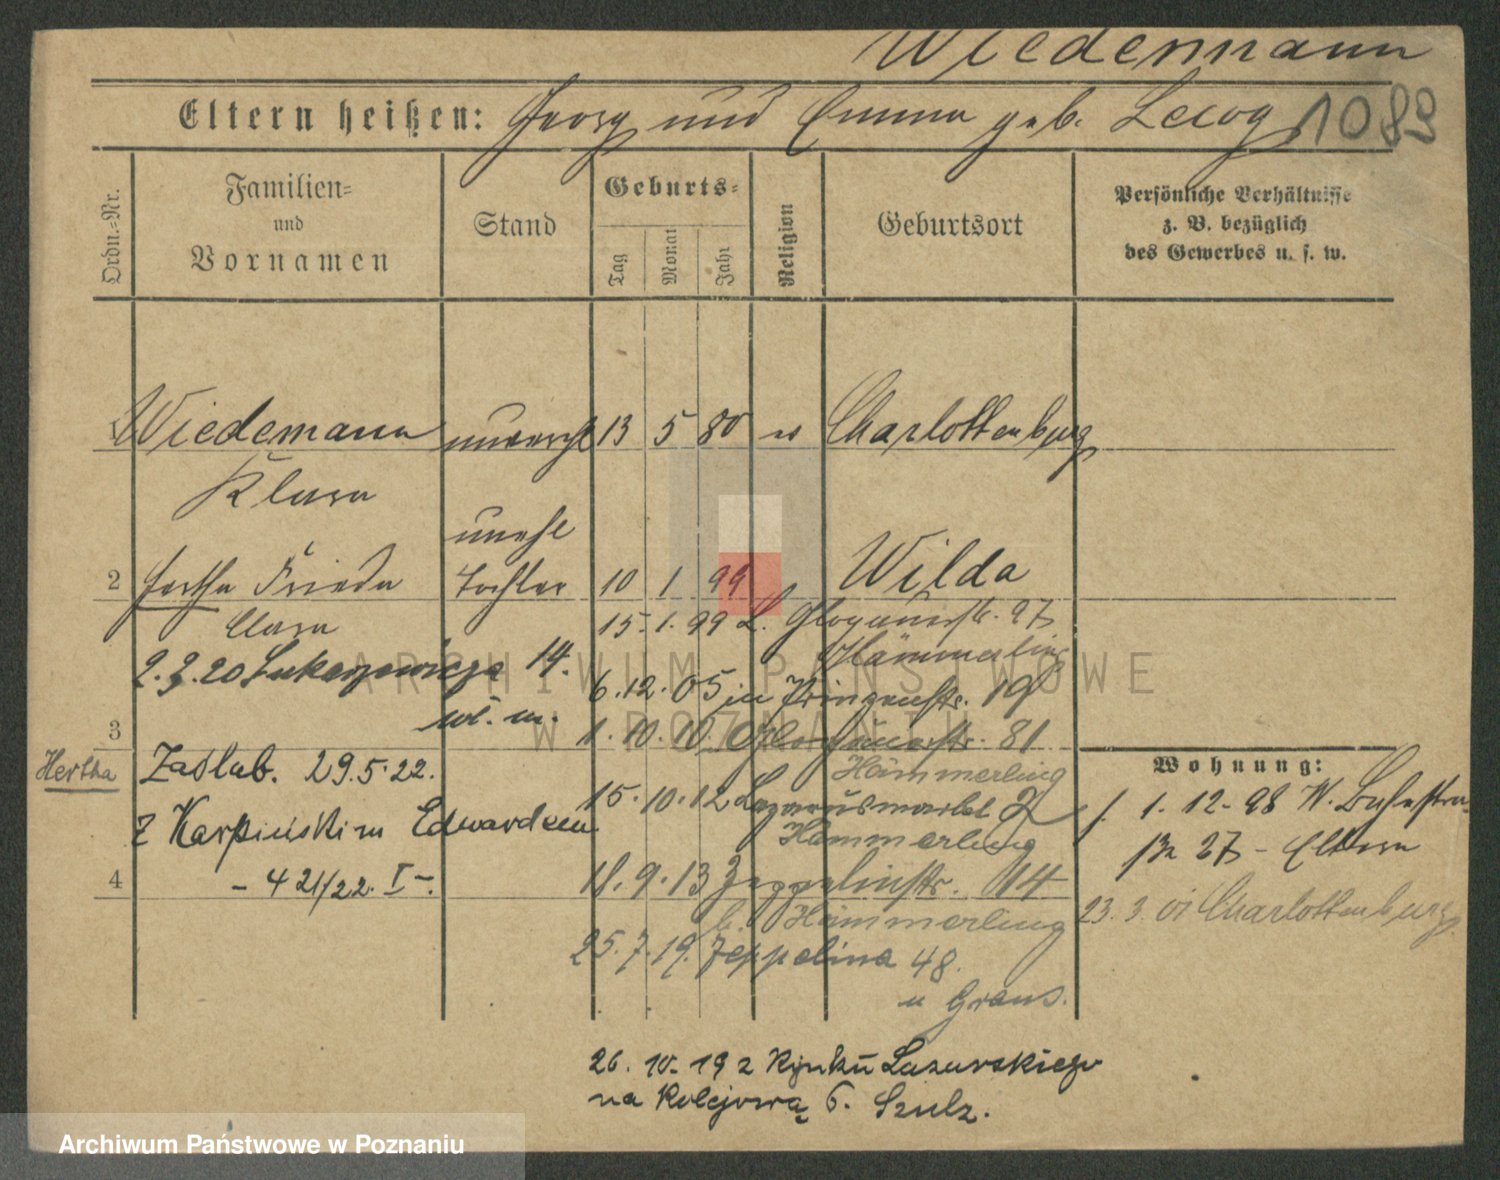 Wiedemann
Eltern heißen: Georg und Emma geb. Lecog 1089
Ordn.-Nr.
Familien-
und
Vornamen
Stand
Geburts-
Tag
Monat
Jahr
Religion
Geburtsort
Persönliche Verhältnisse
z. B. bezüglich
des Gewerbes u. s. w.
1 Wiedemann unverehl 13 5 80 Charlottenburg
Klara
unehl
2 Hertha Frieda Tochter 10 1 99 Wilda
Clara 15. 1. 99 L. Glogauerstr. 27
Hämmerling
2.2.20 Łukaszewicza 14. 6.12.05 in Prinzenstr. 19
wł. m.
3 1.10.10. Glogauerstr. 81
Hertha Zaślub. 29.5.22. Hämmerling
Wohnung:
z Karpińskim Edwardem 15.10.12 Lazarusmarkt 2
Hämmerling
1. 12. 98 W. Bachstra-
ße 27 - Eltern
4 - 421/22. I -. 18.9.13 Zeppelinstr. 14
b. Hämmerling
23. 3. 01 Charlottenburg
25.7.19. Zeppelina 48.
u Grans.
26. 10. 19 z Rynku Łazarskiego
na Kolejową 6. Szulz.
ARCHIWUM PAŃSTWOWE
W POZNANIU
Archiwum Państwowe w Poznaniu